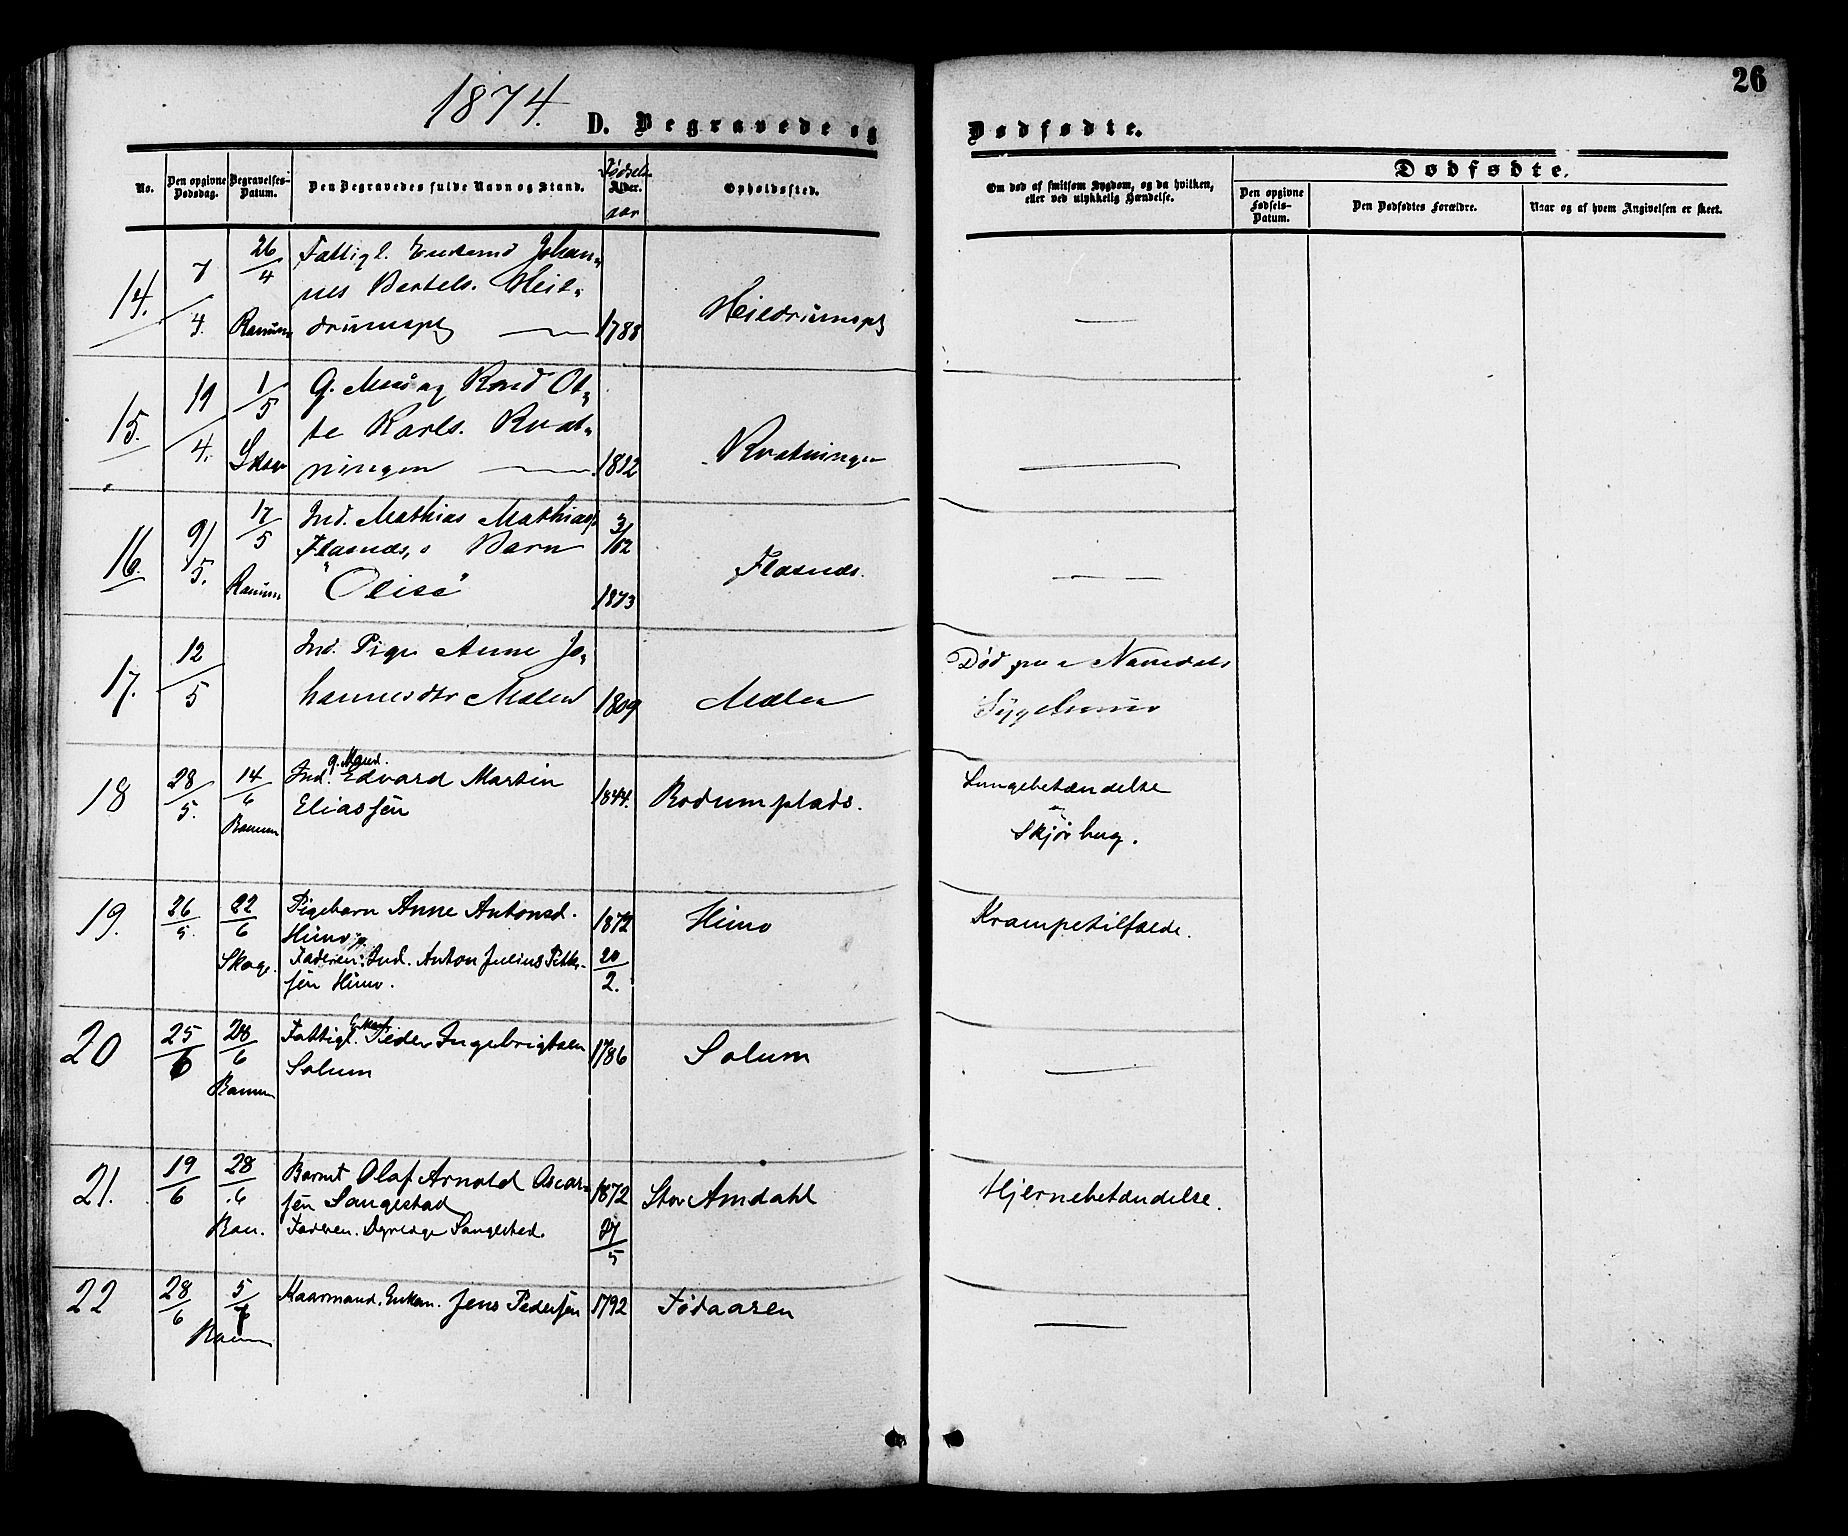 26
1874.
D. Begravede og
Dødfødte.
No.
Den opgivne Dødsdag.
Begravelses-Datum.
Den Begravedes fulde Navn og Stand.
Fødsels
Alder.
aar
Opholdssted.
Om død af smitsom Sygdom, og da hvilken,
eller ved ulykkelig Hændelse.
Dødfødte.
Den opgivne Fødsels-Datum.
Den Dødfødtes Forældre.
Naar og af hvem Angivelsen er skeet.
14.
7/4.
26/4
Ranum
Fattigl. Enkemd Johan-
nes Bertels. Heil-
drumspl
1788
Heildrumspl
15.
19/4.
1/5
Skage
Ot-
te Karls. Kvat-
ningen
1892
Kvatningen
16.
9/5.
17/5
Ranum
Ind. Mathias Mathias.
Flasnæs,s Barn
"Olise"
3/12
1873
Flasnæs.
17.
12/5
Ind. Pige Anne Jo-
hannesdtr Mælen
1809
Mælen
Død paa Namdals
Sygehuus
18
28/5.
14/6
Ranum
g. Mand.
Ind. Edvard Martin
Eliassen
1844.
Rodumplads.
Lungebetændelse
Skjørbug.
19.
26/5.
22/6
Skage.
Pigebarn Anne Antonsd.
Himo
Faderen: Ind. Anton Julius Petter-
sen Himo.
1872
20/2.
Himo
Krampetilfælde.
20
25/6
28/6
Ranum
Fattigl. Peder Ingebrigtsen
Solum
1786
Solum
21.
19/6
28/6
Ran.
Barnet Olaf Arnold Oscar-
sen Sangestad
Faderen. Dyrlæge Sangestad.
1872
27/5
Stor Amdahl
Hjernebetændelse.
22
28/6
5/7
Ranum
Kaarmand. Enkem. Jens Pedersen
1792
Fødaaren